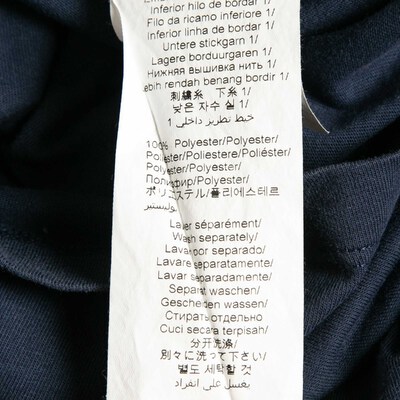 Inferior hilo de bordar 1/
Filo da ricamo inferiore 1/
Inferior linha de bordar 1/
Untere stickgarn 1/
Lagere borduurgaren 1/
Нижняя вышивка нить 1/
Lebih rendah benang bordir 1/
刺繍糸 下糸 1/
낮은 자수 실 1/
خيط تطريز داخلي 1
100% Polyester/Polyester/
Polyester/Poliestere/Poliéster/
Polyester/Polyester/
Полиэфир/Polyester/
ポリエステル/폴리에스테르
بوليستير
Laver séparément/
Wash separately/
Lavar por separado/
Lavare separatamente/
Lavar separadamente/
Separat waschen/
Gescheiden wassen/
Стирать отдельно
Cuci secara terpisah/
分开洗涤/
別々に洗って下さい/
별도 세탁할 것
يغسل على انفراد